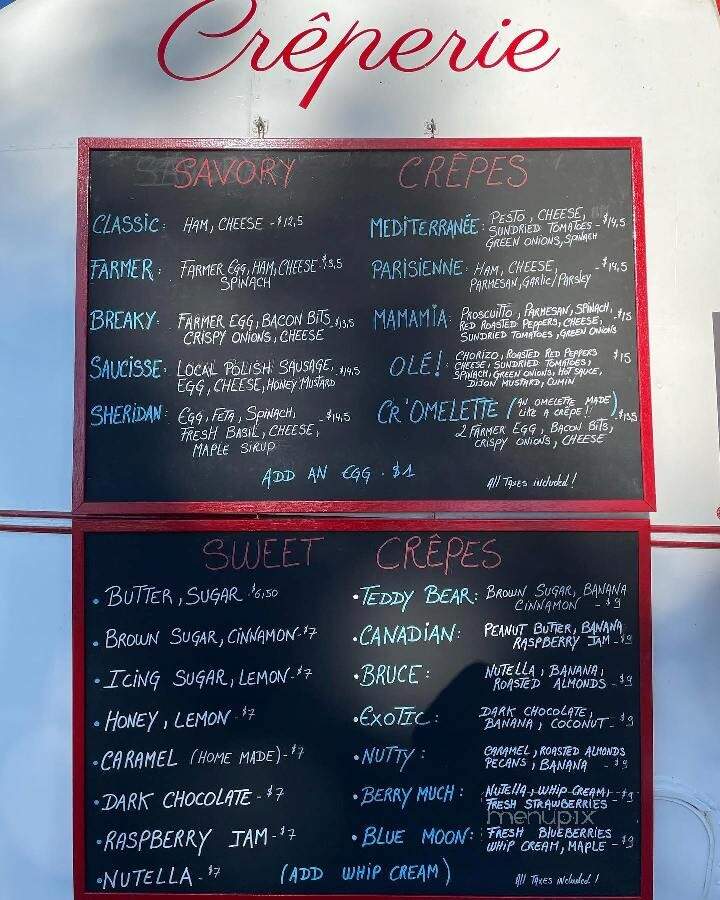 Crêperie
SAVORY CRÊPES
CLASSIC: HAM, CHEESE - $12,5
FARMER: FARMER EGG, HAM, CHEESE
SPINACH
BREAKY: FARMER EGG, BACON BITS - $13,5
CRISPY ONIONS, CHEESE
SAUCISSE: LOCAL POLISH SAUSAGE, - $14,5
EGG, CHEESE, HONEY MUSTARD
SHERIDAN: EGG, FETA, SPINACH, - $14,5
FRESH BASIL, CHEESE,
MAPLE SIRUP
MEDITERRANÉE: PESTO, CHEESE,
SUNDRIED TOMATOES - $14,5
GREEN ONIONS, SPINACH
PARISIENNE: HAM, CHEESE, - $14,5
PARMESAN, GARLIC/PARSLEY
MAMAMIA: PROSCUITTO, PARMESAN, SPINACH, - $15
RED ROASTED PEPPERS, CHEESE,
SUNDRIED TOMATOES, GREEN ONIONS
OLÉ!: CHORIZO, ROASTED RED PEPPERS - $15
CHEESE, SUNDRIED TOMATOES,
SPINACH, GREEN ONIONS, HOT SAUCE,
DIJON MUSTARD, CUMIN
CR'OMELETTE (AN OMELETTE MADE
LIKE A CRÊPE!!) - $13,5
2 FARMER EGG, BACON BITS,
CRISPY ONIONS, CHEESE
ADD AN EGG - $1
All Taxes included!
SWEET CRÊPES
• BUTTER, SUGAR - $6,50
• BROWN SUGAR, CINNAMON - $7
• ICING SUGAR, LEMON - $7
• HONEY, LEMON - $7
• CARAMEL (HOME MADE) - $7
• DARK CHOCOLATE - $7
• RASPBERRY JAM - $7
• NUTELLA - $7
• TEDDY BEAR: BROWN SUGAR, BANANA
CINNAMON - $9
• CANADIAN: PEANUT BUTTER, BANANA
RASPBERRY JAM - $9
• BRUCE: NUTELLA, BANANA,
ROASTED ALMONDS - $9
• EXOTIC: DARK CHOCOLATE,
BANANA, COCONUT - $9
• NUTTY: CARAMEL, ROASTED ALMONDS
PECANS, BANANA - $9
• BERRY MUCH: NUTELLA, WHIP CREAM, - $9
FRESH STRAWBERRIES
menupix
• BLUE MOON: FRESH BLUEBERRIES
WHIP CREAM, MAPLE - $9
(ADD WHIP CREAM)
All Taxes included!